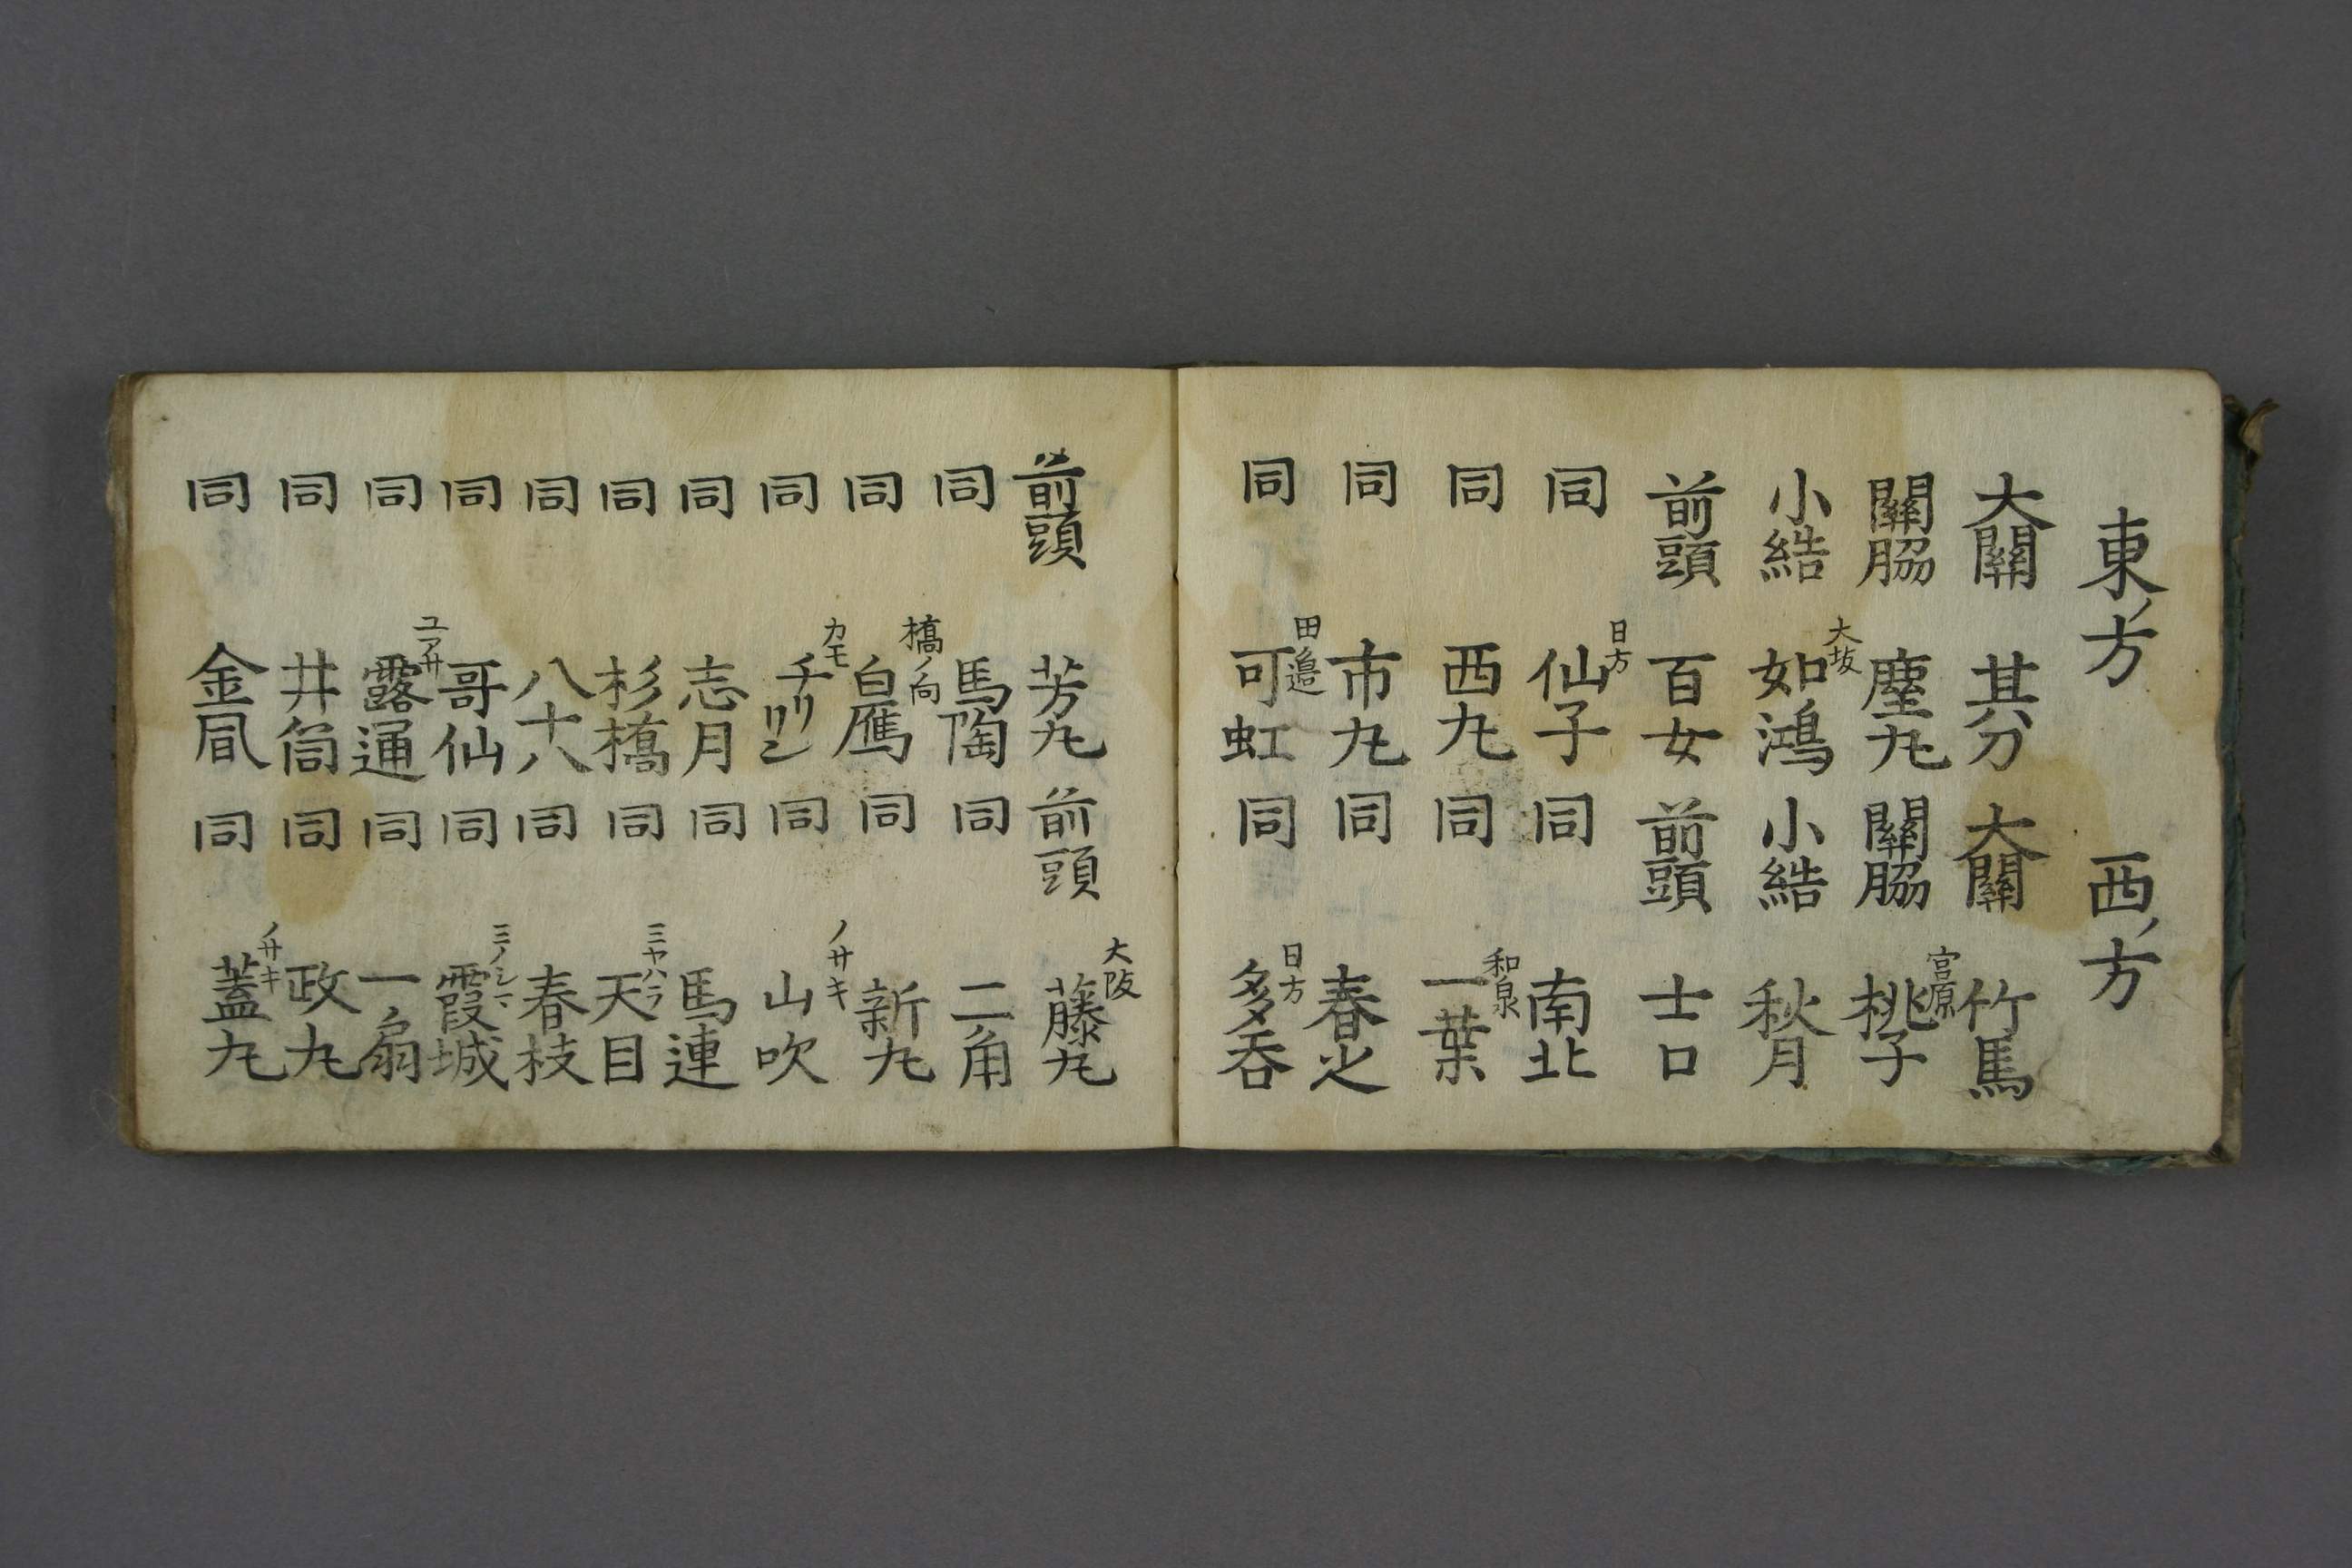 東ノ方　西ノ方
大關　其分　大關　竹馬
關脇　塵丸　關脇　宮原　桃子
小結　大坂　如鴻　小結　秋月
前頭　百女　前頭　士口
同　日方　仙子　同　南北
同　西丸　同　和泉　一葉
同　市丸　同　春之
同　田邉　可虹　同　日方　多呑
前頭　芳丸　前頭　大阪　藤丸
同　馬陶　同　二角
同　橋ノ向　白鴈　同　新丸
同　カモ　チリリン　同　ノサキ　山吹
同　志月　同　馬連
同　杉橋　同　ミヤハラ　天目
同　八十八　同　春枝
同　哥仙　同　ミノシマ　霞城
同　ユアサ　露通　同　一扇
同　井筒　同　政丸
同　金凬　同　ノサキ　蓋丸